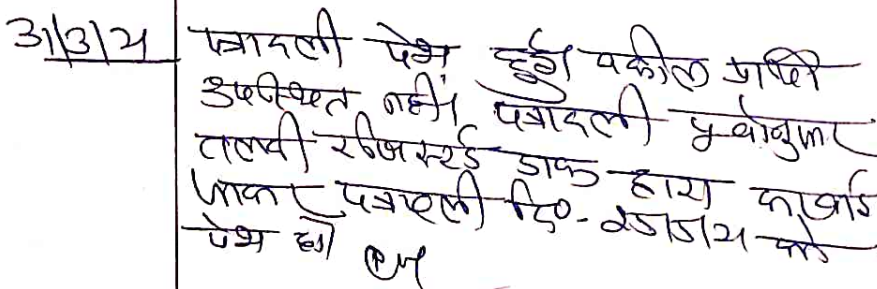 31/3/21 पत्रावली पेश हुई। वकील प्रार्थी
उपस्थित नहीं। पत्रावली पूर्वानुसार
तलबी रजिस्टर्ड डाक द्वारा कराई
जाकर पत्रावली दि०- 25/5/21 को
पेश हो